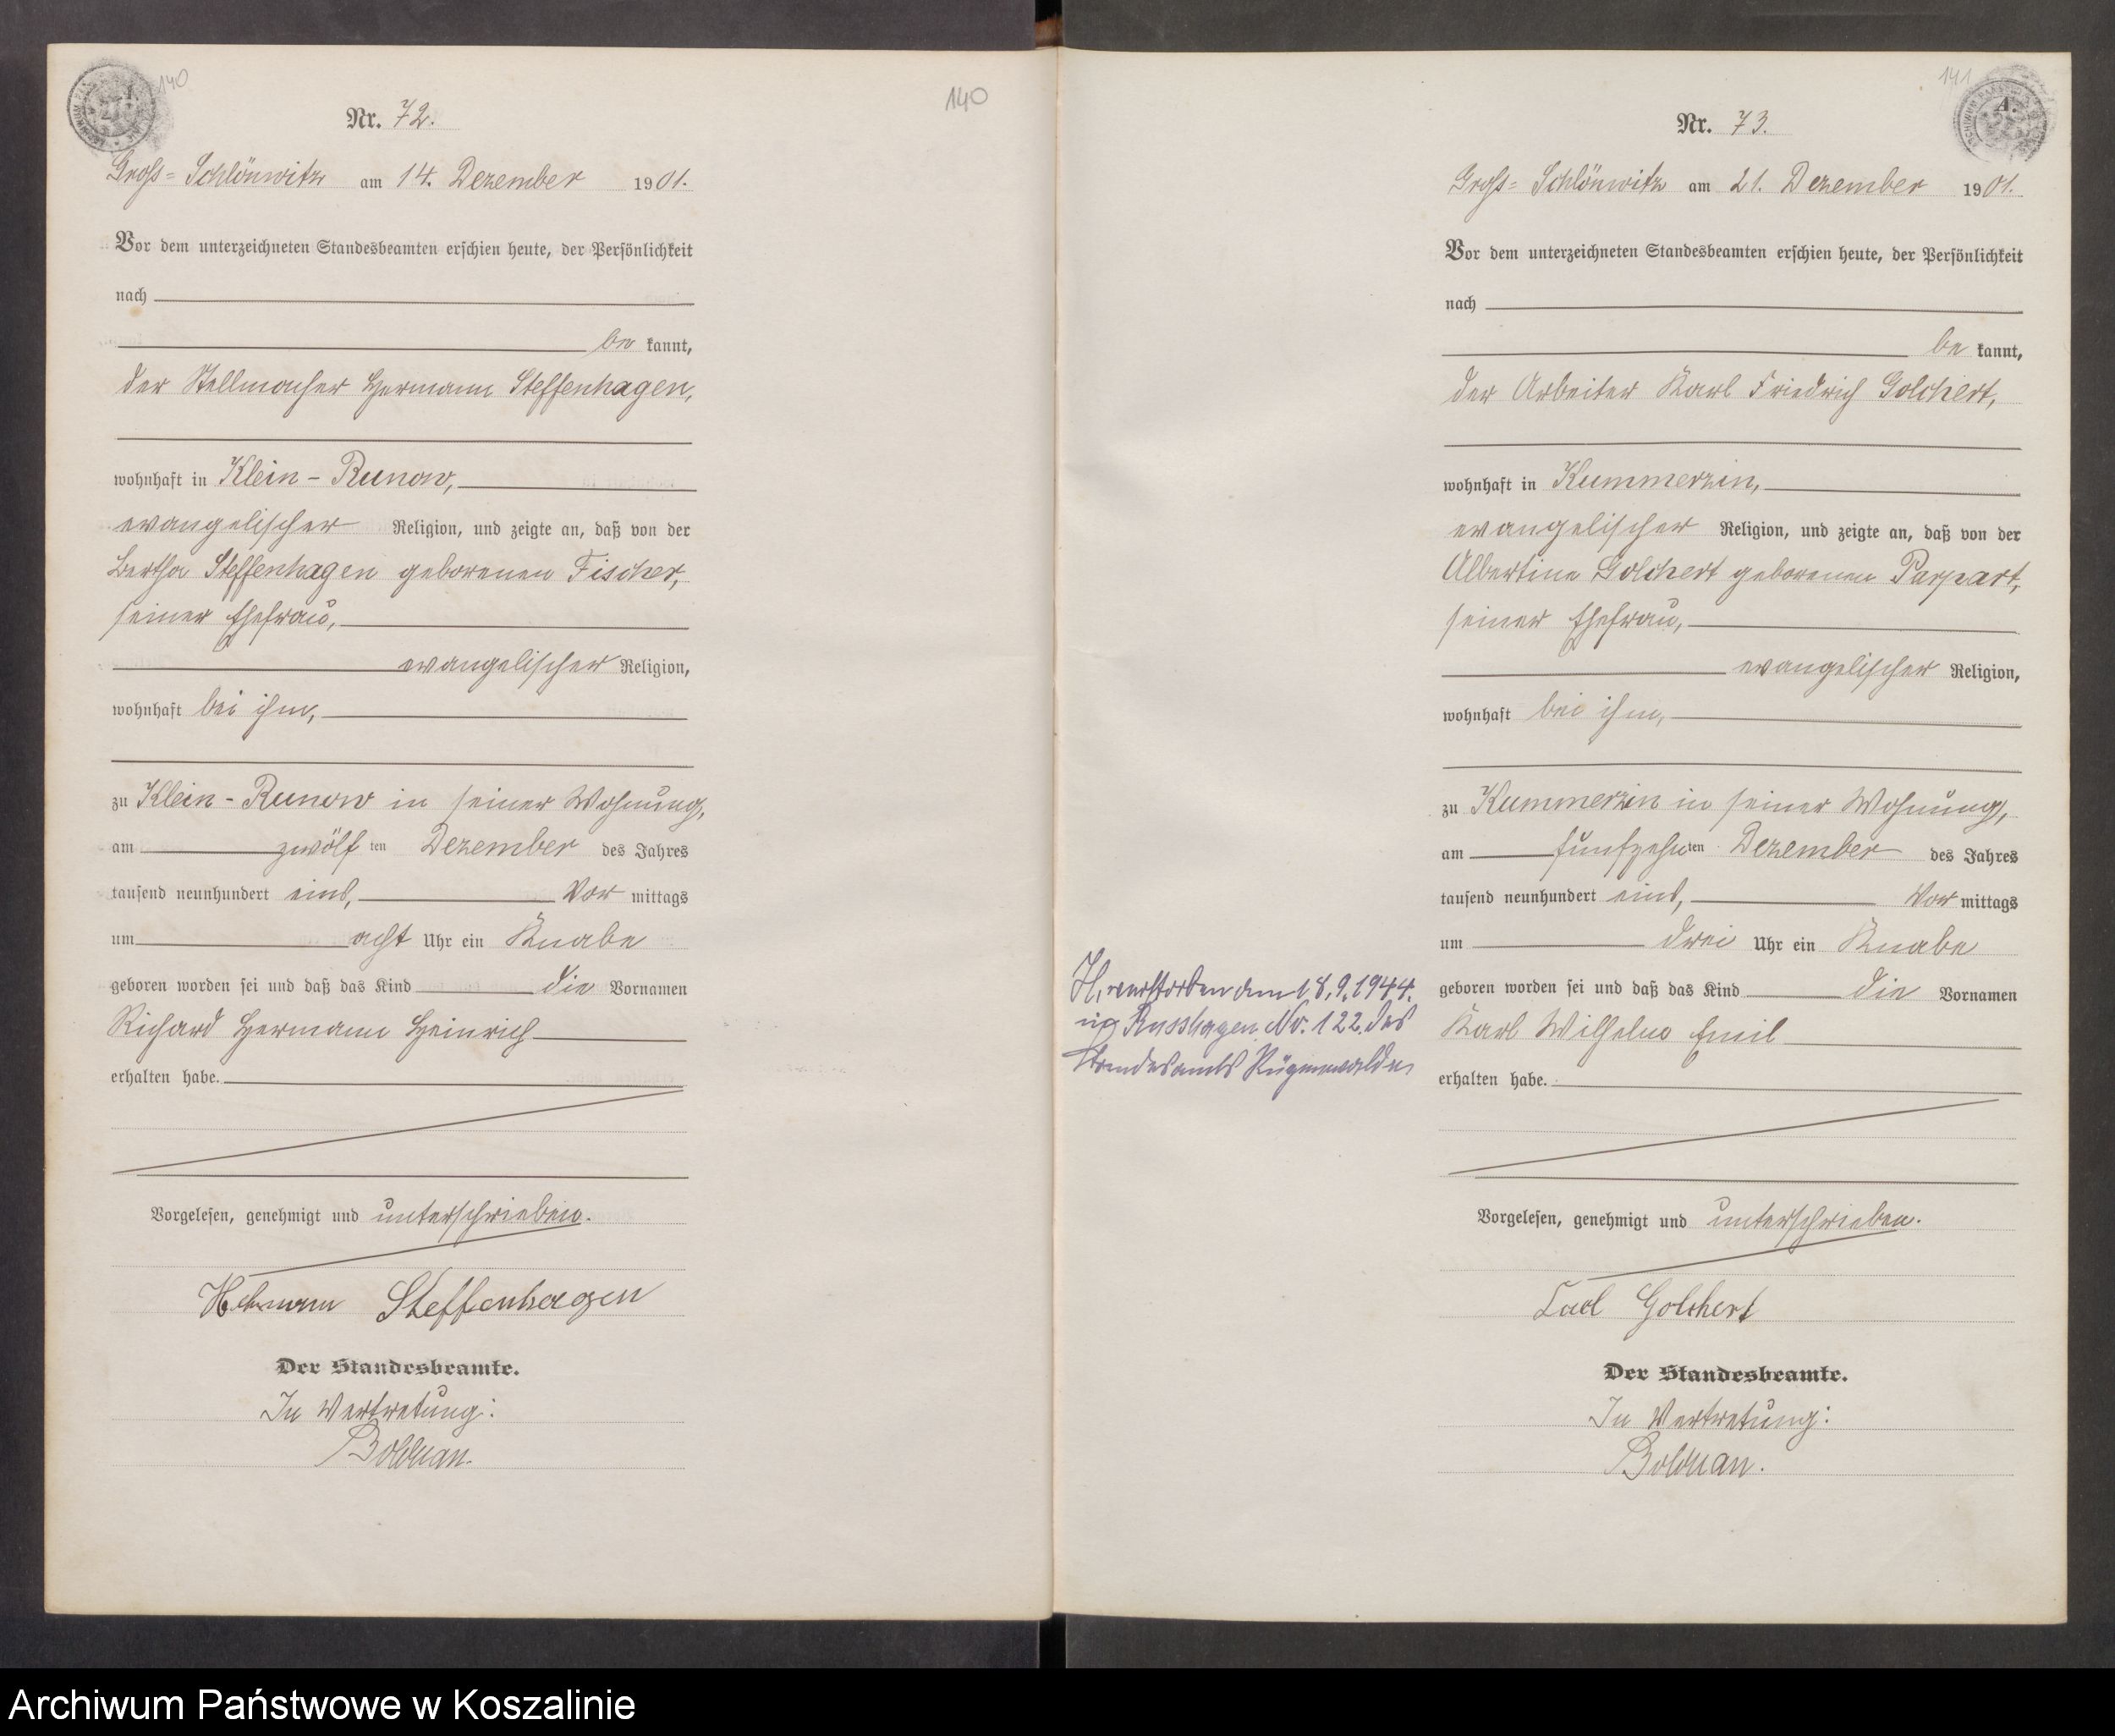 140
140
Nr. 72.
Gross=Schlönwitz am 14. Dezember 1901.
Vor dem unterzeichneten Standesbeamten erschien heute, der Persönlichkeit
nach
be kannt,
der Stellmacher Hermann Steffenhagen,
wohnhaft in Klein-Runow,
evangelischer Religion, und zeigte an, daß von der
Bertha Steffenhagen geborenen Fischer,
seiner Ehefrau,
evangelischer Religion,
wohnhaft bei ihm,
zu Klein-Runow in seiner Wohnung,
am zwölf ten Dezember des Jahres
tausend neunhundert eins, Vor mittags
um acht Uhr ein Knabe
geboren worden sei und daß das Kind die Vornamen
Richard Hermann Heinrich
erhalten habe.
Vorgelesen, genehmigt und unterschrieben.
Hermann Steffenhagen
Der Standesbeamte.
In Vertretung:
Bolduan.
141
A.
Nr. 73.
Gross=Schlönwitz am 21. Dezember 1901.
Vor dem unterzeichneten Standesbeamten erschien heute, der Persönlichkeit
nach
be kannt,
der Arbeiter Karl Friedrich Golchert,
wohnhaft in Kummerzin,
evangelischer Religion, und zeigte an, daß von der
Albertine Golchert geborenen Parpart,
seiner Ehefrau,
evangelischer Religion,
wohnhaft bei ihm,
zu Kummerzin in seiner Wohnung,
am fünfzehn ten Dezember des Jahres
tausend neunhundert eins, Vor mittags
um drei Uhr ein Knabe
geboren worden sei und daß das Kind die Vornamen
Karl Wilhelm Emil
erhalten habe.
Vorgelesen, genehmigt und unterschrieben.
Carl Golchert
Der Standesbeamte.
In Vertretung:
Bolduan.
verstorben am 18.9.1944.
in Russhagen Nr. 122. des
Standesamts Rügenwalde
Archiwum Państwowe w Koszalinie